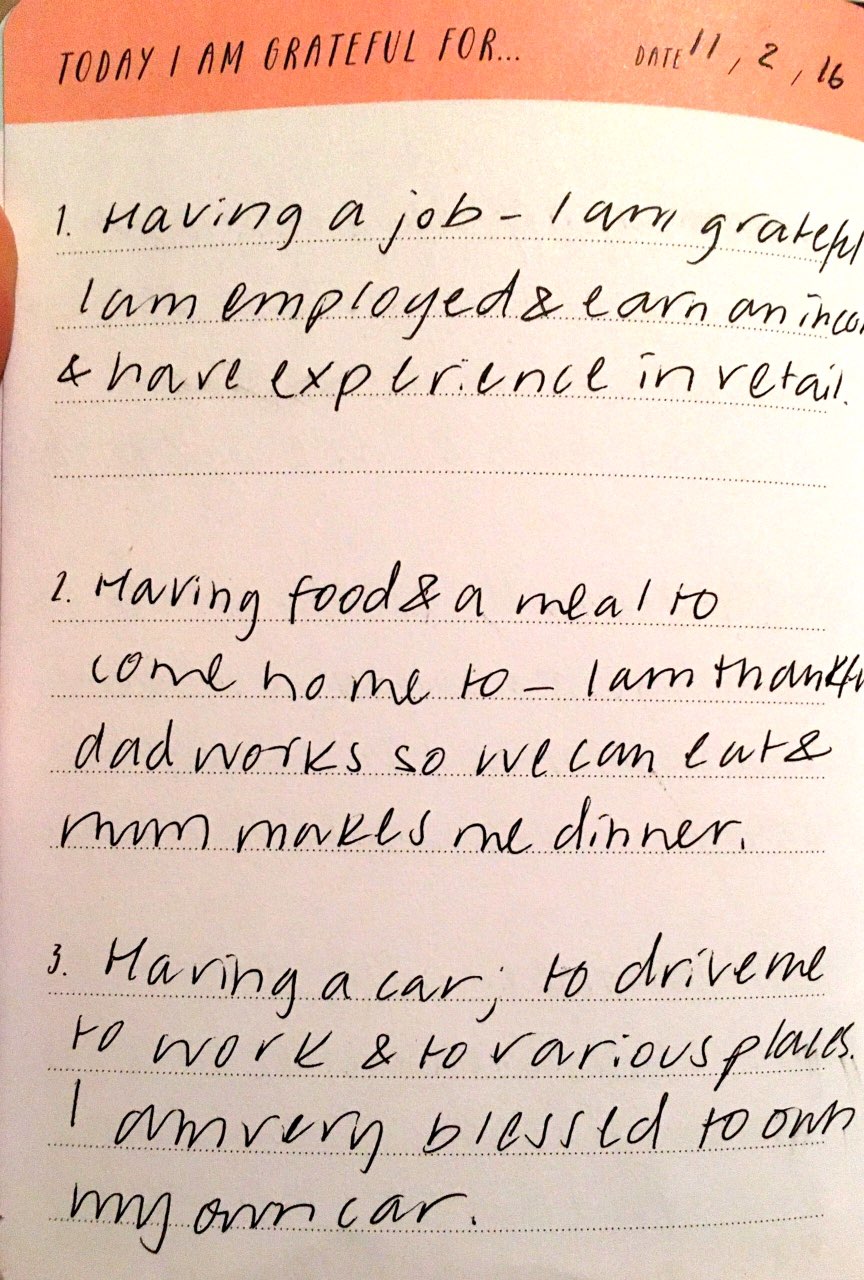 TODAY I AM GRATEFUL FOR...
DATE 11, 2, 16
1. Having a job - I am grateful
I am employed & earn an inco
& have experience in retail.
2. Having food & a meal to
come home to - I am thankfu
dad works so we can eat &
mum makes me dinner.
3. Having a car; to drive me
to work & to various places.
I am very blessed to own
my own car.